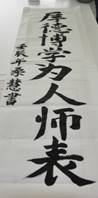 厚德博学为人师表
壬辰年荣慧書